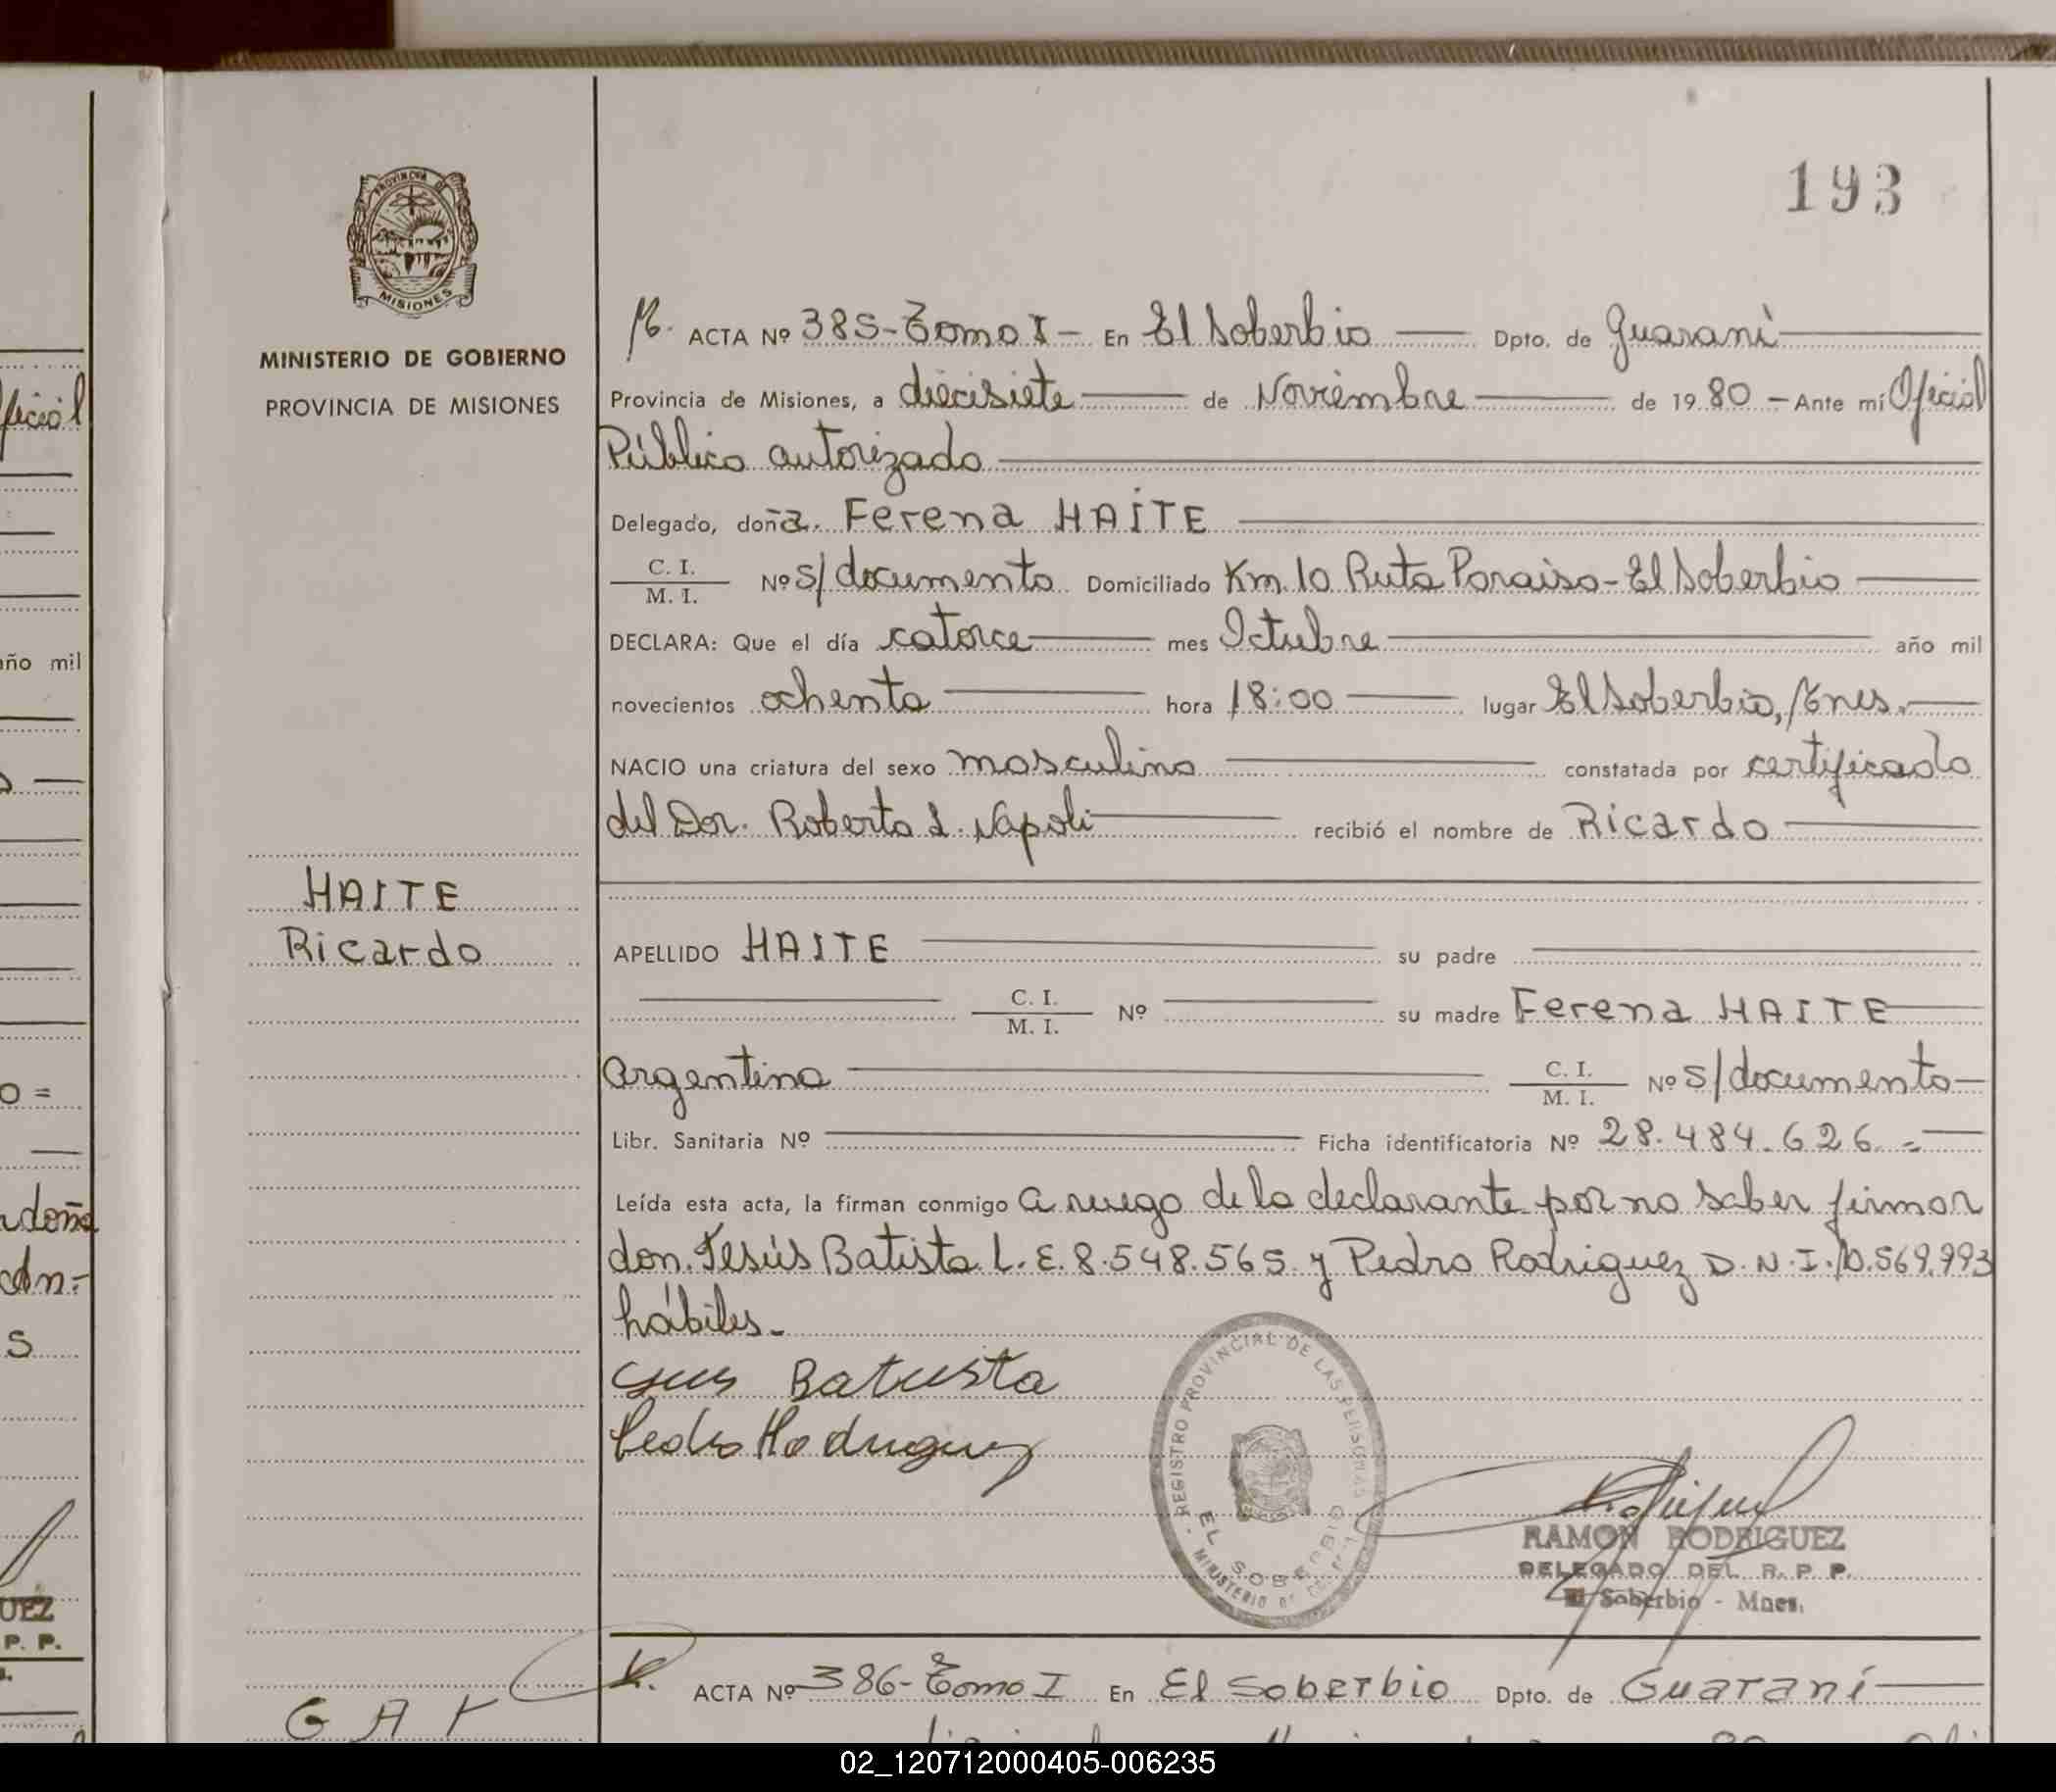 193
PROVINCIA DE
MISIONES
MINISTERIO DE GOBIERNO
PROVINCIA DE MISIONES
ACTA Nº 385-Tomo I- En El Soberbio Dpto. de Guaraní
Provincia de Misiones, a diecisiete de Noviembre de 1980 - Ante mí Oficial
Público autorizado
Delegado, doña. Ferena HAITE
C. I. / M. I. Nº s/documento Domiciliado Km. 10 Ruta Paraiso-El Soberbio
DECLARA: Que el día catorce mes Octubre año mil
novecientos ochenta hora 18:00 lugar El Soberbio, Mnes.
NACIO una criatura del sexo masculino constatada por certificado
del Dor. Roberto L. Napoli recibió el nombre de Ricardo
HAITE
Ricardo
APELLIDO HAITE su padre
C. I. / M. I. Nº su madre Ferena HAITE
Argentina C. I. / M. I. Nº s/documento
Libr. Sanitaria Nº Ficha identificatoria Nº 28.484.626.=
Leída esta acta, la firman conmigo a ruego de la declarante por no saber firmar
don. Jesús Batista L.E. 8.548.565 y Pedro Rodriguez D.N.I. 10.569.993
hábiles.-
Batista
Pedro Rodriguez
REGISTRO PROVINCIAL DE LAS PERSONAS
EL SOBERBIO
MINISTERIO DE
RAMON RODRIGUEZ
DELEGADO DEL R. P. P.
El Soberbio - Mnes.
ACTA Nº 386-Tomo I En El Soberbio Dpto. de Guaraní
año mil
doña
UEZ
P. P.
02_120712000405-006235